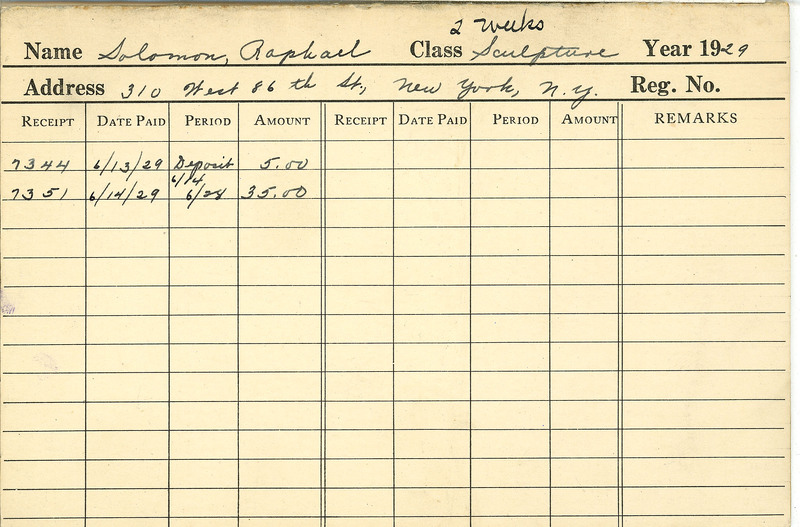 2 Weeks
Name Solomon, Raphael Class Sculpture Year 1929
Address 310 West 86th St., New York, N.Y. Reg. No.
RECEIPT DATE PAID PERIOD AMOUNT RECEIPT DATE PAID PERIOD AMOUNT REMARKS
7344 6/13/29 Deposit 5.00
6/14
7351 6/14/29 6/28 35.00